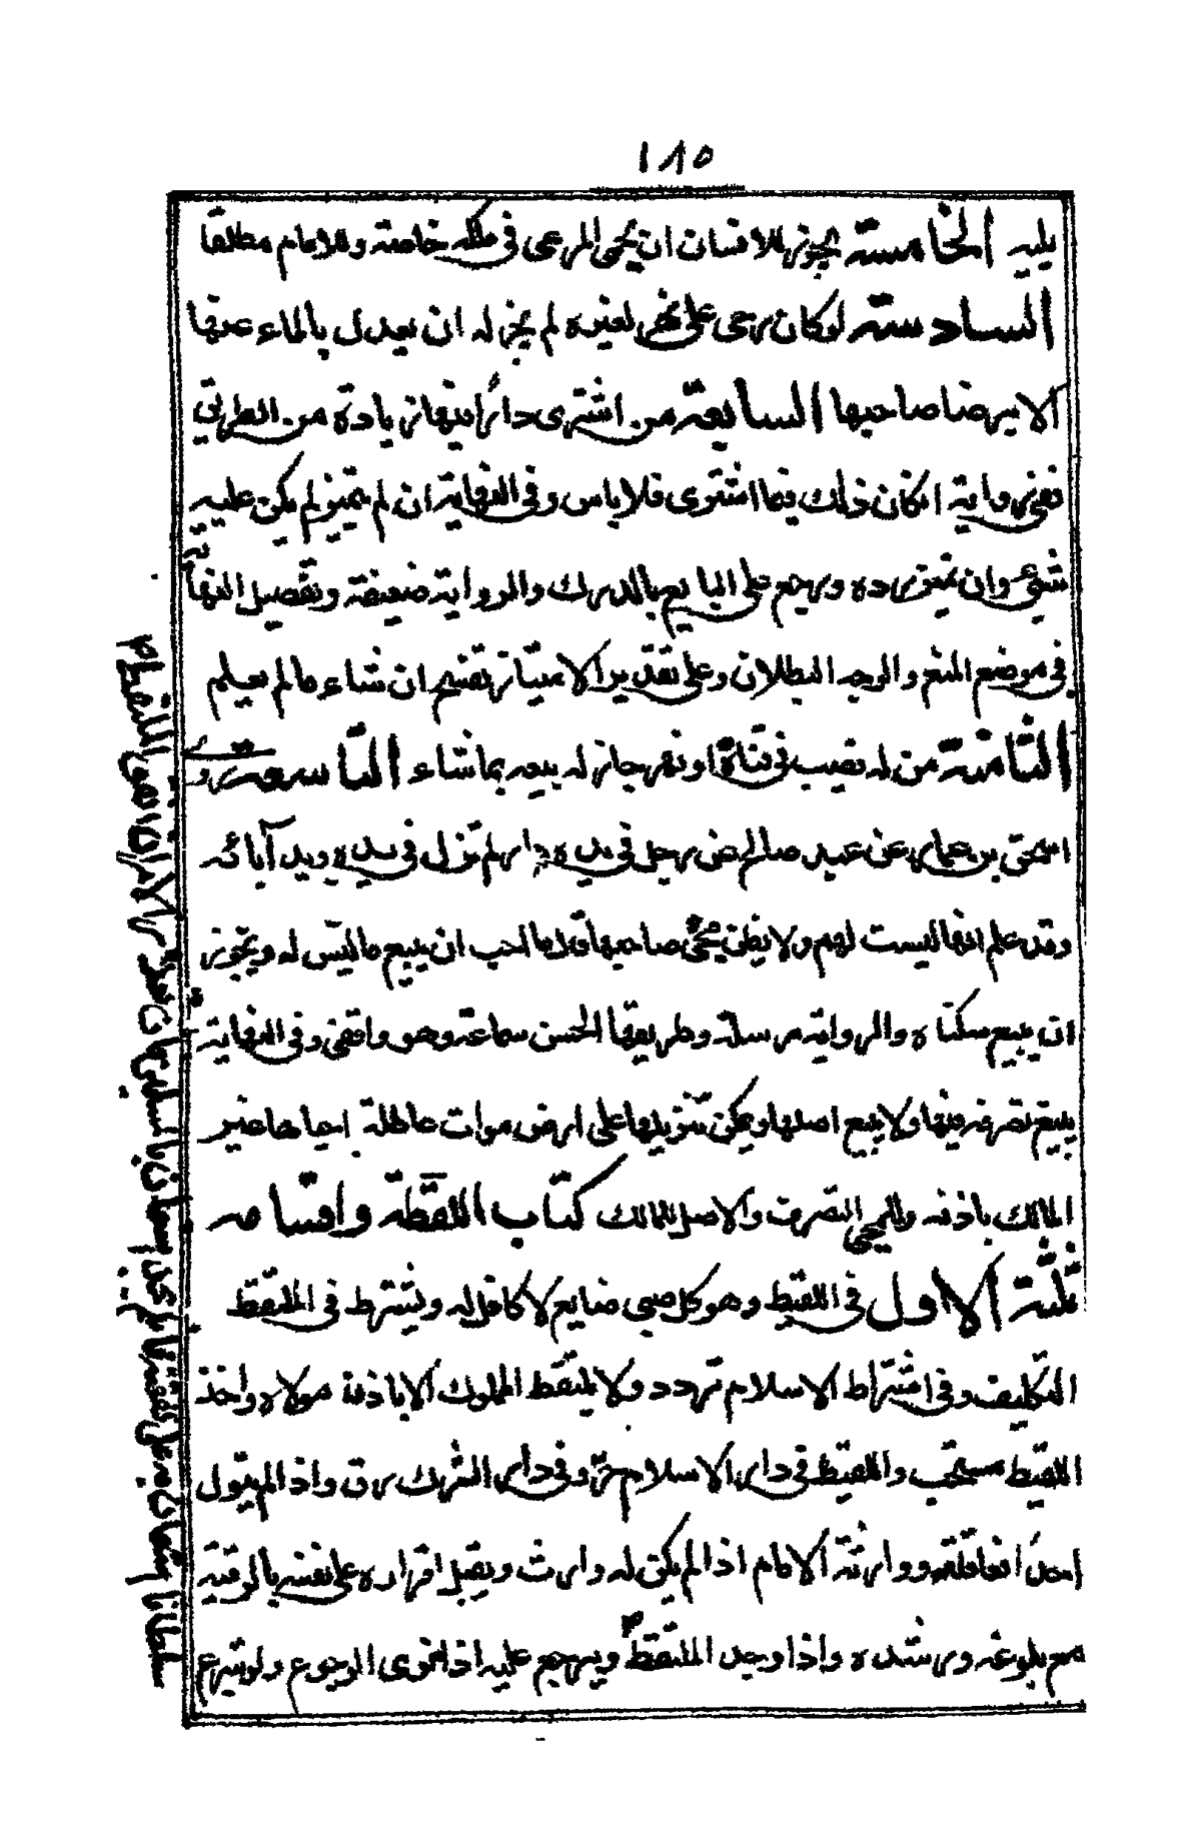 ١٨٥
يليه الخامسة يجوز للانسان ان يحمى المرعى فى ملكه خاصة وللامام مطلقا
السادسة لو كان رحى على نهر لغيره لم يجز له ان يعدل بالماء عنها
الا برضا صاحبها السابعة من اشترى دارا فيها زيادة من الطريق
ففى رواية ان كان ذلك فيما اشترى فلا باس وفى النهاية ان لم يتميز لم يكن عليه
شيئ وان تميز رده ورجع على البايع بالدرك والرواية ضعيفة وتفصيل النهاية
فى موضع المنع والوجه البطلان وعلى تقدير الامتياز تفسخ ان شاء ما لم يعلم
الثامنة من له نصيب فى قناة او نهر جاز له بيعه بما شاء التاسعة روى
اسحق بن عمار عن عبد صالح عن رجل فى يده دار لم تزل فى يده ويد آبائه
وقد علم انها ليست لهم ولا يظن مجئ صاحبها قال ما احب ان يبيع ما ليس له ويجوز
ان يبيع سكناه والرواية مرسلة وطريقها الحسن سماعة وهو واقفى وفى النهاية
يبيع تصرفه فيها ولا يبيع اصلها ويمكن تنزيلها على ارض موات عاطلة احياها غير
المالك باذنه وللمحيى التصرف والاصل للمالك كتاب اللقطة واقسامه
ثلثة الاول فى اللقيط وهو كل صبى ضايع لا كافل له ويشترط فى الملتقط
التكليف وفى اشتراط الاسلام تردد ولا يلتقط المملوك الا باذن مولاه واخذ
اللقيط مستحب واللقيط فى دار الاسلام حر وفى دار الشرك رق واذا لم يتول
احدا فعاقلته ووارثه الامام اذا لم يكن له وارث ويقبل اقراره على نفسه بالرقية
مع بلوغه ورشده واذا وجد الملتقط ويرجع عليه اذا نوى الرجوع ولو تبرع
سلطانا استعان به على نفقته فان لم يجد استعان بالمسلمين فان تعذر الامران انفق الملتقط م